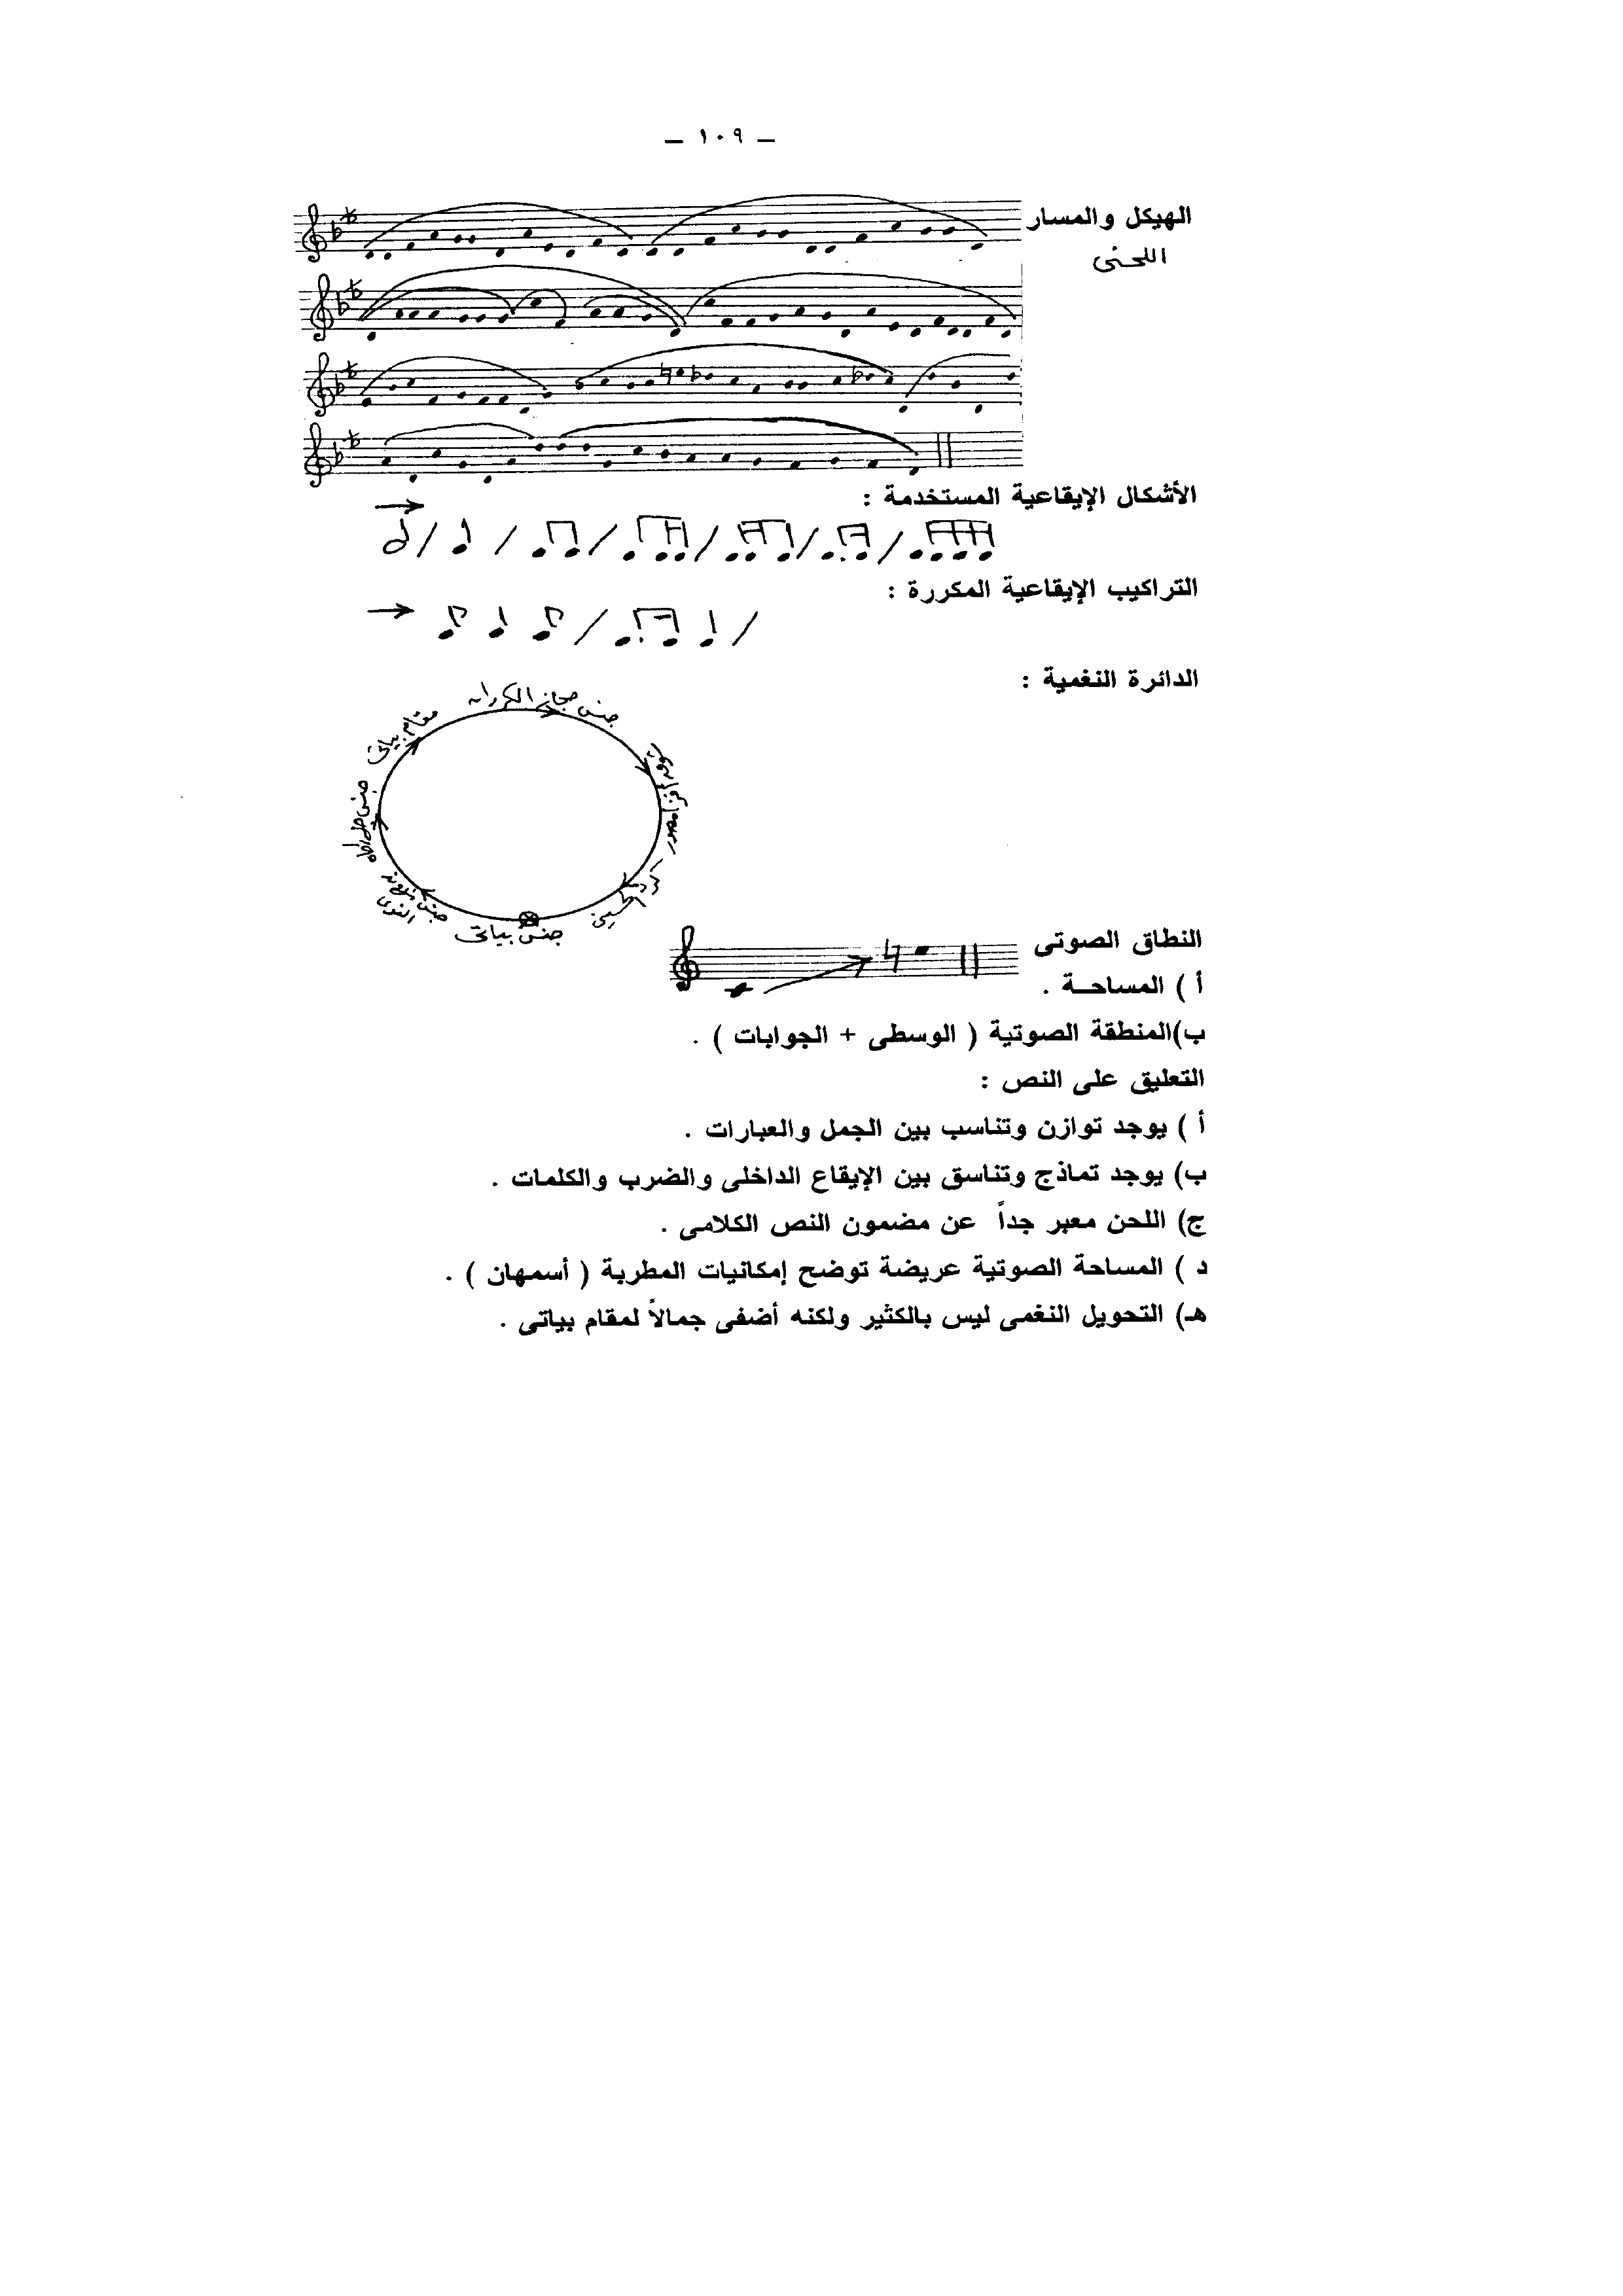 – ١٠٩ –
الهيكل والمسار
اللحنى
الأشكال الإيقاعية المستخدمة :
التراكيب الإيقاعية المكررة :
الدائرة النغمية :
جنس حجاز الكردان
مقام بياتى
جنس بياتى
النوى
النطاق الصوتى
أ ) المساحـة .
ب)المنطقة الصوتية ( الوسطى + الجوابات ) .
التعليق على النص :
أ ) يوجد توازن وتناسب بين الجمل والعبارات .
ب) يوجد تماذج وتناسق بين الإيقاع الداخلى والضرب والكلمات .
ج) اللحن معبر جداً عن مضمون النص الكلامى .
د ) المساحة الصوتية عريضة توضح إمكانيات المطربة ( أسمهان ) .
هـ) التحويل النغمى ليس بالكثير ولكنه أضفى جمالاً لمقام بياتى .